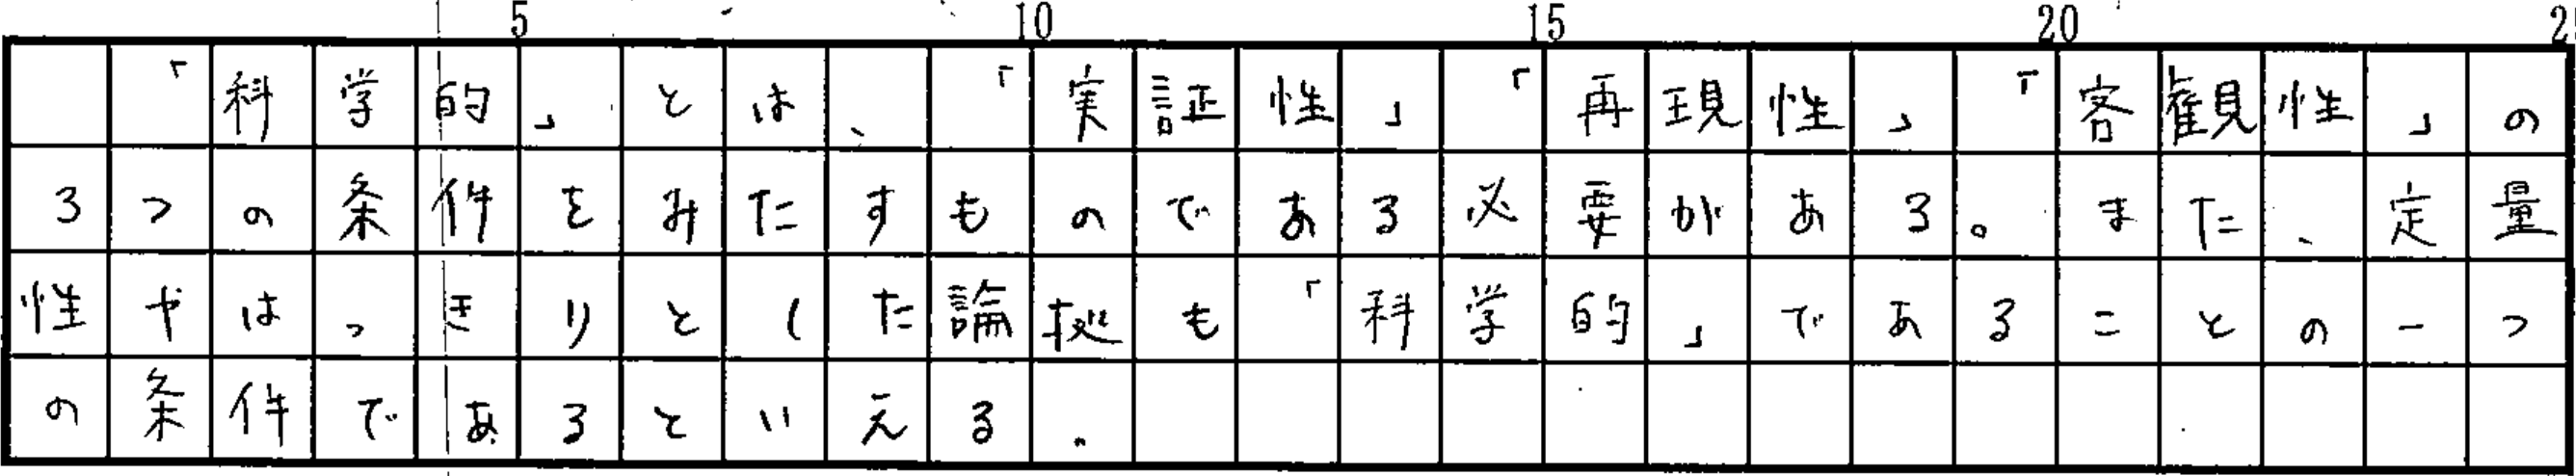 5 10 15 20 2
「科学的」とは、「実証性」「再現性」「客観性」の
3つの条件をみたすものである必要がある。また、定量
性やはっきりとした論拠も「科学的」であることの一つ
の条件であるといえる。